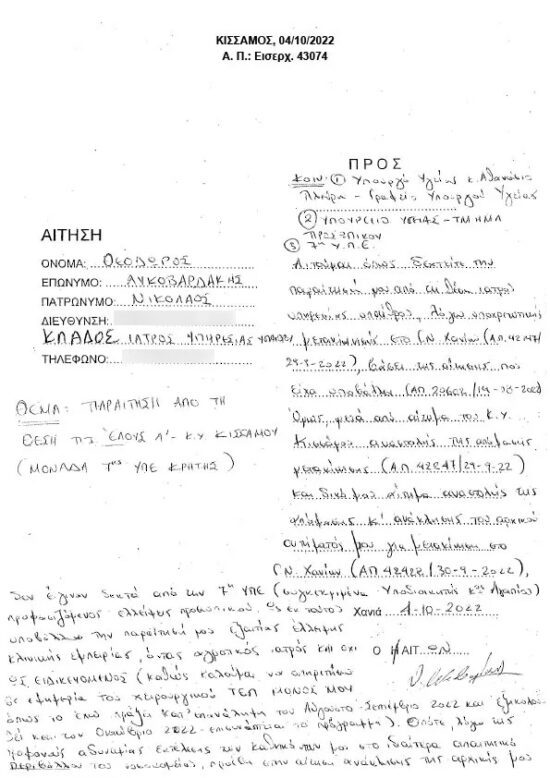 ΚΙΣΣΑΜΟΣ, 04/10/2022
Α. Π.: Εισερχ. 43074
ΠΡΟΣ
ΚΟΙΝ: ① Υπουργό Υγείας κ. Αθανάσιο
Πλεύρη - Γραφείο Υπουργού Υγείας
② ΥΠΟΥΡΓΕΙΟ ΥΓΕΙΑΣ - ΤΜΗΜΑ
ΠΡΟΣΩΠΙΚΟΥ
③ 7η Υ.Π.Ε.
ΑΙΤΗΣΗ
ΟΝΟΜΑ: ΘΕΟΔΩΡΟΣ
ΕΠΩΝΥΜΟ: ΛΥΚΟΒΑΡΔΑΚΗΣ
ΠΑΤΡΩΝΥΜΟ: ΝΙΚΟΛΑΟΣ
ΔΙΕΥΘΥΝΣΗ:
ΚΛΑΔΟΣ ΙΑΤΡΟΣ ΥΠΗΡΕΣΙΑΣ ΥΠΑΙΘΡΟΥ
ΤΗΛΕΦΩΝΟ:
ΘΕΜΑ: ΠΑΡΑΙΤΗΣΗ ΑΠΟ ΤΗ
ΘΕΣΗ ΤΗΣ ΕΛΟΥΣ Α' - Κ.Υ ΚΙΣΣΑΜΟΥ
(ΜΟΝΑΔΑ 7ης ΥΠΕ ΚΡΗΤΗΣ)
Αιτούμαι όπως δεχτείτε την
παραίτησή μου από τη θέση ιατρού
υπηρεσίας υπαίθρου, λόγω υποχρεωτικής
μετακίνησης στο Γ.Ν. Χανίων (Α.Π. 42147/
29-9-2022), βάσει της αίτησης που
είχα υποβάλλει (ΑΠ
Όμως, μετά από αίτημα του Κ.Υ.
Κισσάμου αναστολής της απόφασης
μετακίνησης (Α.Π. 42247/29-9-22)
και δικό μου αίτημα αναστολής της
απόφασης κ' ανάκλησης του αρχικού
αιτήματός μου για μετακίνηση στο
Γ.Ν. Χανίων (ΑΠ 42422/30-9-2022),
δεν έγιναν δεκτά από την 7η ΥΠΕ (συγκεκριμένα Υποδιοικητής
προφασιζόμενος ελλείψεις προσωπικού. Ως εκ τούτου
Χανιά 1-10-2022
υποβάλλω την παραίτησή μου εξαιτίας έλλειψης
κλινικής εμπειρίας, όντας αγροτικός ιατρός και όχι
Ο ΗΑΙΤ ΩΝ
ΩΣ ΕΙΔΙΚΕΥΟΜΕΝΟΣ (καθώς καλούμαι να στηρίξω
ως εφημερία του χειρουργικού ΤΕΠ ΜΟΝΟΣ ΜΟΥ
όπως το έχω πράξει κατ' επανάληψη τον Αύγουστο-Σεπτέμβριο 2022 και
και τον Οκτώβριο 2022 - επισυνάπτεται το πρόγραμμα). Οπότε, λόγω της
προφανούς αδυναμίας εκτέλεσης των καθηκόντων μου στο ιδιαίτερα απαιτητικό
περιβάλλον του νοσοκομείου, προέβην στην αίτηση ανάκλησης της αρχικής μου